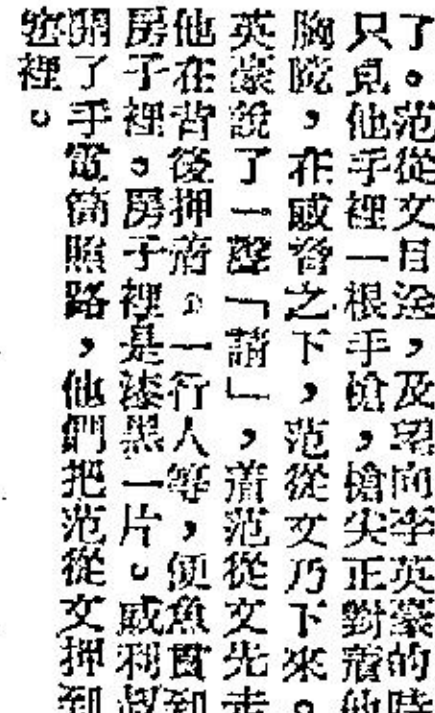 了。范從文目淦，及望向李英豪的時
只見他手裡一根手槍，槍尖正對着他
胸脘，在威脅之下，范從文乃下來。
英豪說了一聲「請」，着范從文先走
他在背後押着。一行人等，便魚貫到
房子裡。房子裡是漆黑一片。威利叔
開了手電筒照路，他們把范從文押到
窖裡。